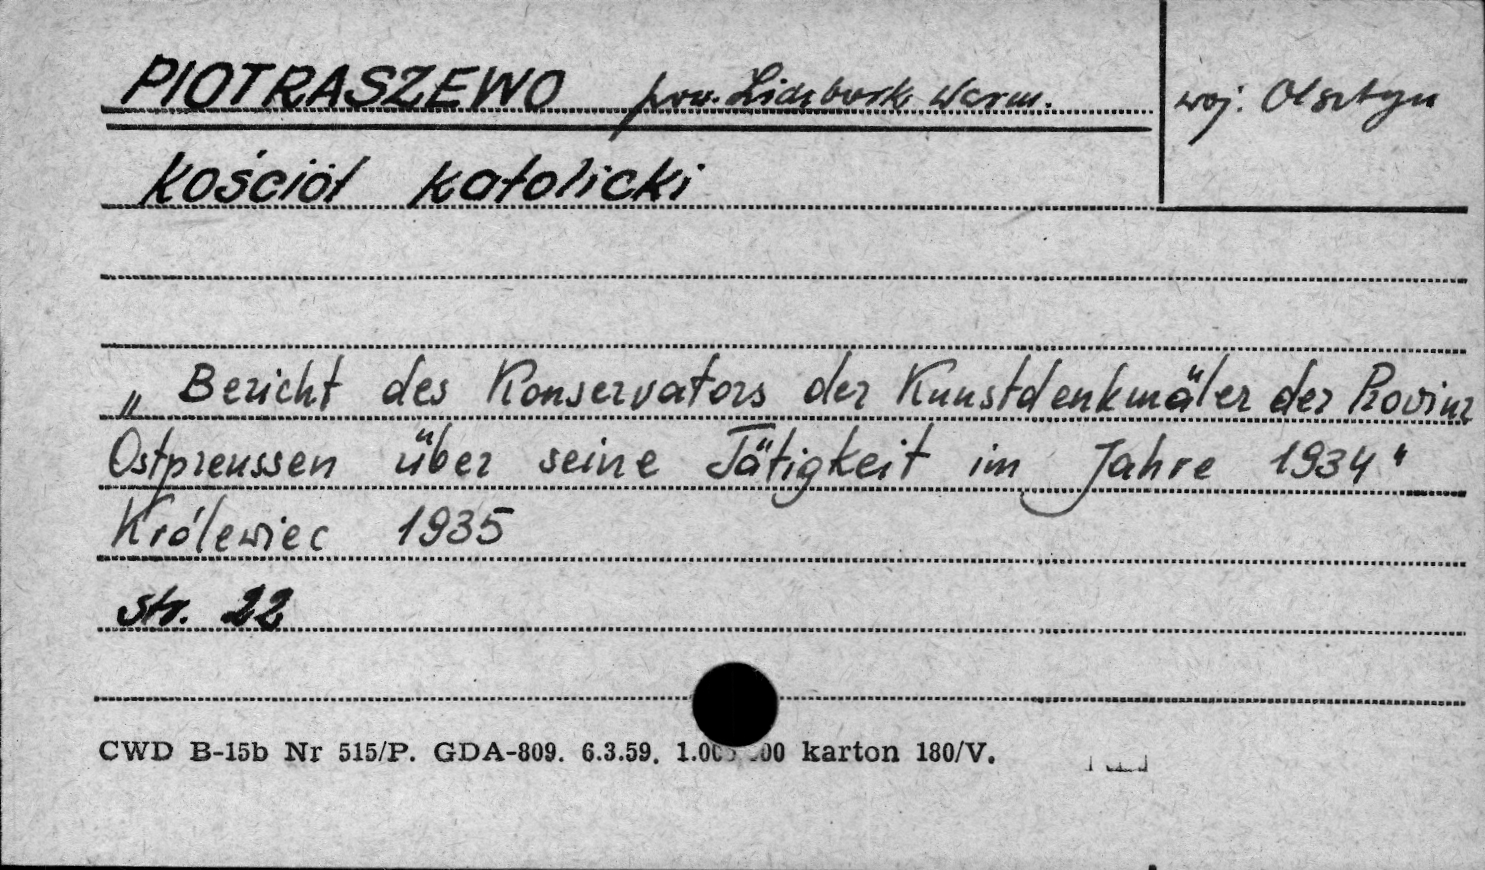 PIOTRASZEWO pow. Lidzbark Warm. woj. Olsztyn
Kościół katolicki
„Bericht des Konservators der Kunstdenkmäler der Provinz
Ostpreussen über seine Tätigkeit im Jahre 1934"
Królewiec 1935
str. 22
CWD B-15b Nr 515/P. GDA-809. 6.3.59. karton 180/V.